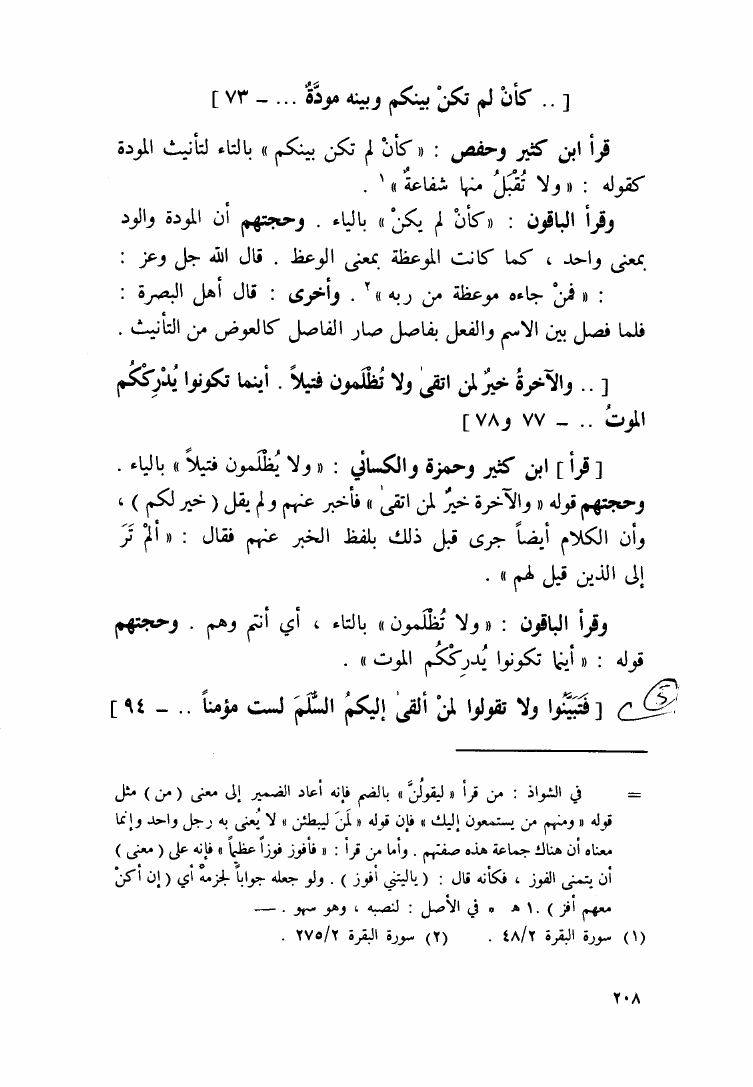 [ .. كأنْ لم تكنْ بينكم وبينه مودَّةٌ ... – ٧٣ ]
قرأ ابن كثير وحفص : « كأنْ لم تكن بينكم » بالتاء لتأنيث المودة
كقوله : « ولا تُقْبَلُ منها شفاعةٌ »١ .
وقرأ الباقون : «كأنْ لم يكنْ» بالياء . وحجتهم أن المودة والود
بمعنى واحد ، كما كانت الموعظة بمعنى الوعظ . قال الله جل وعز :
: « فمنْ جاءه موعظة من ربه »٢ . وأخرى : قال أهل البصرة :
فلما فصل بين الاسم والفعل بفاصل صار الفاصل كالعوض من التأنيث .
[ .. والآخرةُ خيرٌ لمن اتقىٰ ولا تُظْلَمون فتيلاً . أينما تكونوا يُدْرِكْكُم
الموتُ .. – ٧٧ و٧٨ ]
[ قرأ ] ابن كثير وحمزة والكسائي : « ولا يُظْلَمون فتيلاً » بالياء .
وحجتهم قوله « والآخرة خيرٌ لمن اتقىٰ » فأخبر عنهم ولم يقل ( خير لكم ) ،
وأن الكلام أيضاً جرى قبل ذلك بلفظ الخبر عنهم فقال : « ألمْ تَرَ
إلى الذين قيل لهم » .
وقرأ الباقون : « ولا تُظْلَمون » بالتاء ، أي أنتم وهم . وحجتهم
قوله : « أينما تكونوا يُدرِكْكُم الموت » .
[ فَتَبَيَّنُوا ولا تقولوا لمنْ ألقىٰ إليكمُ السَّلَمَ لست مؤمناً .. – ٩٤ ]
= في الشواذ : من قرأ « ليقولُنَّ » بالضم فإنه أعاد الضمير إلى معنى ( من ) مثل
قوله « ومنهم من يستمعون إليك » فإن قوله « لمَنَ ليبطئن » لا يُعنى به رجل واحد وإنما
معناه أن هناك جماعة هذه صفتهم . وأما من قرأ : « فأفوز فوزاً عظيماً » فإنه على ( معنى )
أن يتمنى الفوز ، فكأنه قال : ( ياليتني أفوز ) . ولو جعله جواباً لجزمهْ أي ( إن أكنْ
معهم أفز ) . ١ ه ٥ في الأصل : لنصبه ، وهو سهو . —
(١) سورة البقرة ٤٨/٢ . (٢) سورة البقرة ٢٧٥/٢ .
٢٠٨